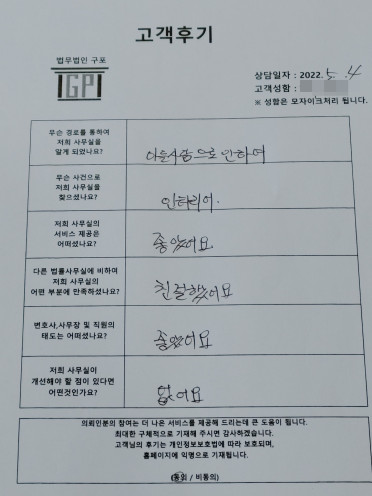 고객후기
법무법인 구포
GP
상담일자 : 2022. 5. 4
고객성함 :
※ 성함은 모자이크처리 됩니다.
무슨 경로를 통하여
저희 사무실을
알게 되었나요?
아는사람으로 인하여
무슨 사건으로
저희 사무실을
찾으셨나요?
인테리어.
저희 사무실의
서비스 제공은
어떠셨나요?
좋았어요
다른 법률사무실에 비하여
저희 사무실의
어떤 부분에 만족하셨나요?
친절했어요
변호사,사무장 및 직원의
태도는 어떠셨나요?
좋았어요
저희 사무실이
개선해야 할 점이 있다면
어떤것인가요?
없어요
의뢰인분의 참여는 더 나은 서비스를 제공해 드리는데 큰 도움이 됩니다.
최대한 구체적으로 기재해 주시면 감사하겠습니다.
고객님의 후기는 개인정보보호법에 따라 보호되며,
홈페이지에 익명으로 기재됩니다.
(동의 / 비동의)